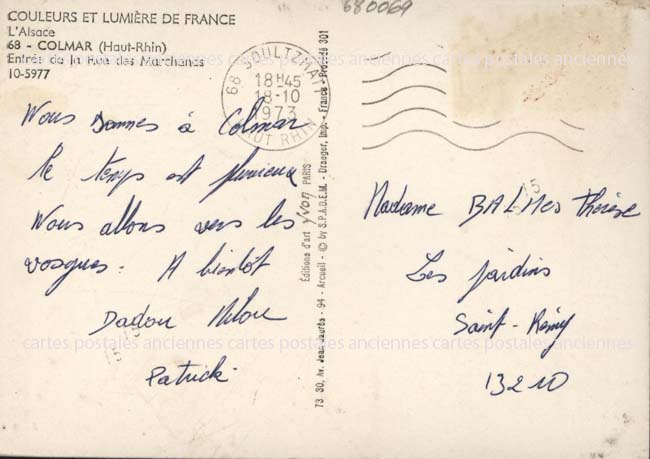 680069
COULEURS ET LUMIÈRE DE FRANCE
L'Alsace
68 - COLMAR (Haut-Rhin)
Entrée de la Rue des Marchands
10-5977
68 SOULTZMATT
18H45
18-10
1973
HAUT RHIN
Nous sommes à Colmar
le temps est pluvieux
Nous allons vers les
vosges. A bientôt
Dadou Milou
Patrick.
Éditions d'art yvon PARIS
73, 30, Av. Jean-Jaurès - 94 - Arcueil - © by S.P.A.D.E.M. - Draeger, Imp. - France - Procédé 301
Madame BALMES Thérèse
Les jardins
Saint-Rémy
13210
cartes postales anciennes cartes postales anciennes cartes postales anciennes
cartes postales anciennes cartes postales anciennes cartes postales anciennes